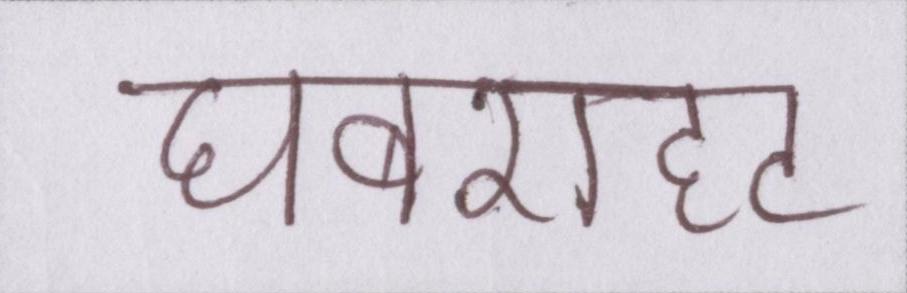 घबराहट